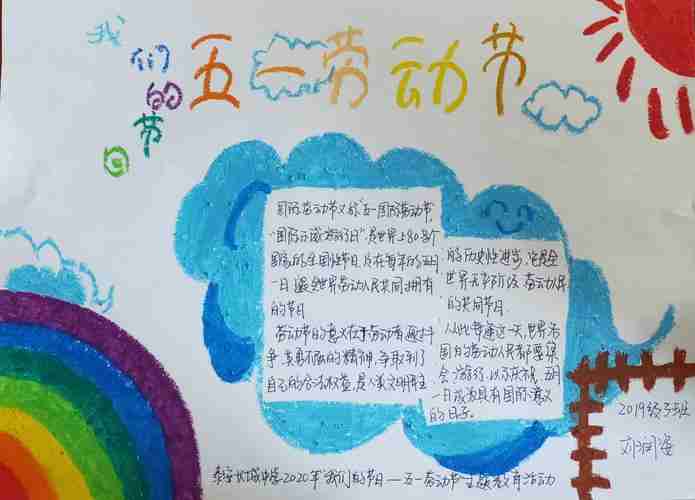 我们的节日
五一劳动节
国际劳动节又称"五一国际劳动节"
"国际示威游行日"是世界上80多个
国家的全国性节日,定在每年的五月
一日。是全世界劳动人民共同拥有
的节日
劳动节的意义在于劳动者通过斗
争,英勇不屈的精神,争取到了
自己的合法权益,是人类文明民主
的历史性进步,它是全
世界无产阶级、劳动人民
的共同节日
从此每逢这一天,世界各
国的劳动人民都要集
会、游行,以示庆祝,五月
一日成为具有国际意义
的日子。
2019级3班
泰安长城中学2020年"我们的节日——五一劳动节"主题教育活动